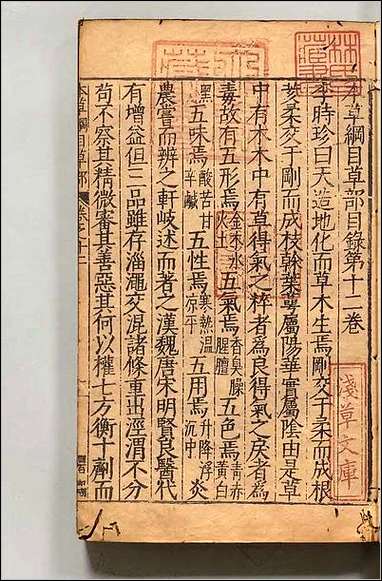 本草綱目草部目錄第十二卷
李時珍曰天造地化而草木生焉剛交于柔而成根
荄柔交于剛而成枝幹葉萼屬陽華實屬陰由是草
中有木木中有草得氣之粹者為良得氣之戾者為
毒故有五形焉金木水火土五氣焉香臭臊腥膻五色焉青赤黃白
黑五味焉酸苦甘辛鹹五性焉寒熱溫涼平五用焉升降浮沉中炎
農嘗而辨之軒岐述而著之漢魏唐宋明賢良醫代
有增益但三品雖存淄澠交混諸條重出涇渭不分
苟不察其精微審其善惡其何以權七方衡十劑而
本草綱目草部
淺草文庫